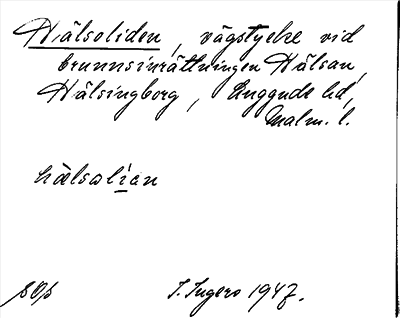 Hälsoliden, vägstycke vid
brunnsinrättningen Hälsan,
Hälsingborg, Luggude hd,
Malm. l.
hälsolian
I. Ingers 1947.